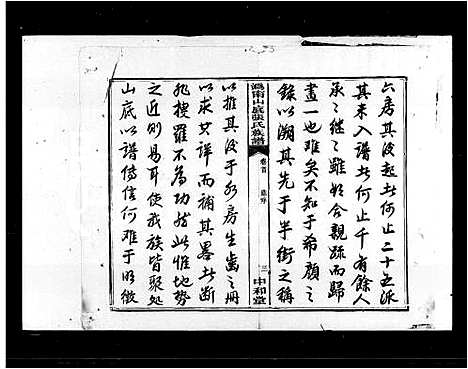 六房其後起者何止二十五派
其未入譜者何止千有餘人
承之継之雖如合親疏而歸
畫一也难矣不知于希顔之
錄以溯其先于半街之稱
溈甯山底張氏族譜
卷首
三
中和堂
以推其後于各房生齒之冊
以求其詳而補其畧者斷
非搜羅不為功然此惟地勢
之近則易耳使我族皆聚処
山底以譜傳信何难于明徵